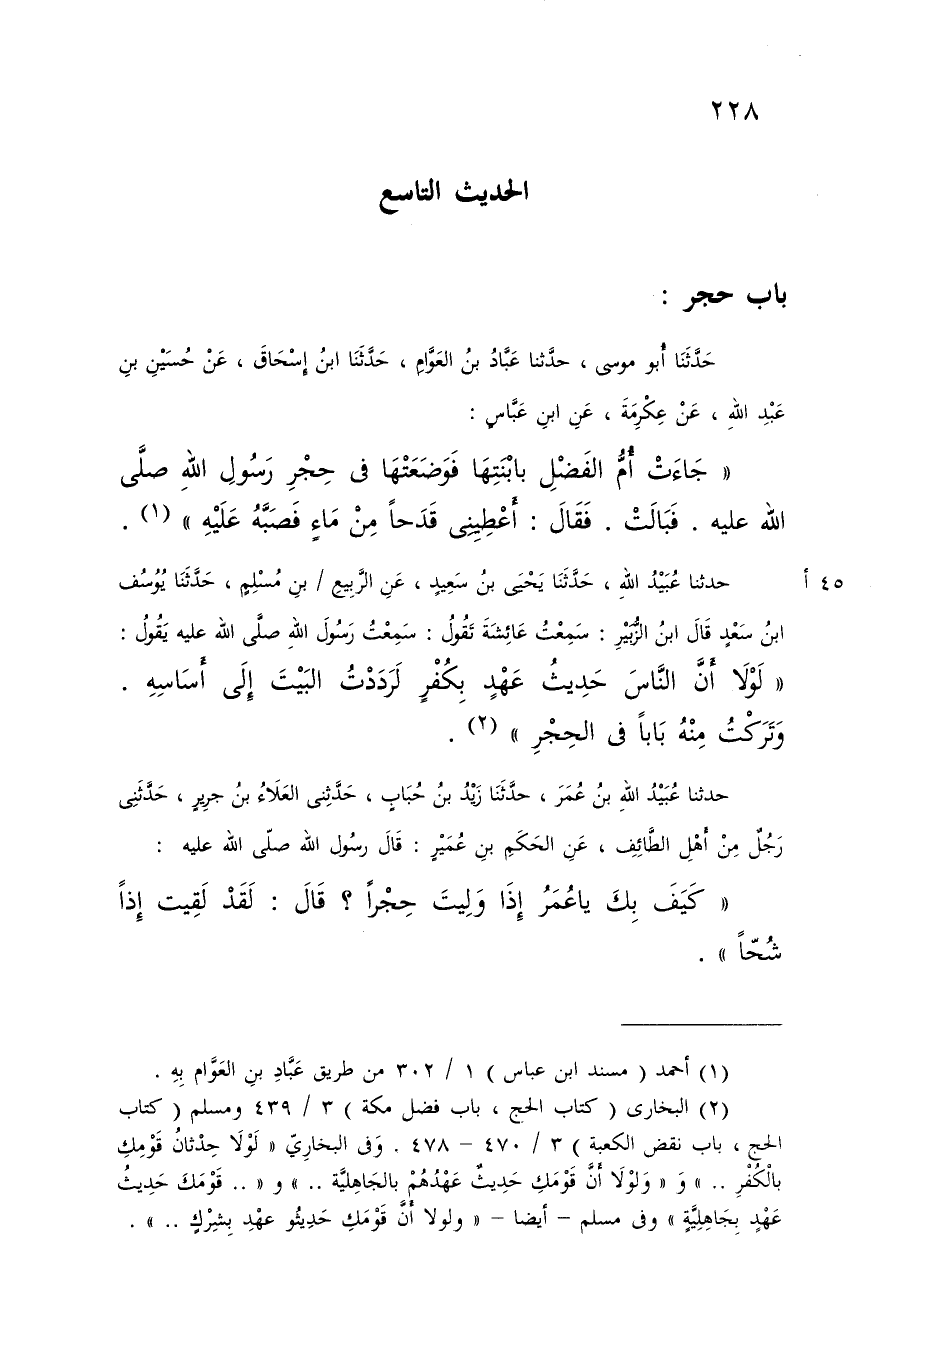 ٢٢٨
الحديث التاسع
باب حجر :
حَدَّثَنَا أَبو موسى ، حدَّثنا عَبَّادُ بنُ العَوَّامِ ، حَدَّثَنَا ابنُ إِسْحَاقَ ، عَنْ حُسَيْنِ بنِ
عَبْدِ اللهِ ، عَنْ عِكْرِمَةَ ، عَنِ ابنِ عَبَّاسٍ :
« جَاءَتْ أُمُّ الفَضْلِ بابْنَتِهَا فَوَضَعَتْهَا فى حِجْرِ رَسُولِ اللهِ صلَّى
الله عليه . فَبَالَتْ . فَقَالَ : أَعْطِينِى قَدَحاً مِنْ مَاءٍ فَصَبَّهُ عَلَيْهِ » (١) .
حدثنا عُبَيْدُ اللهِ ، حَدَّثَنَا يَحْيَى بنُ سَعِيدٍ ، عَنِ الرَّبِيعِ / بنِ مُسْلِمٍ ، حَدَّثَنَا يُوْسُف
٤٥ أ
ابنُ سَعْدٍ قَالَ ابنُ الزُّبَيْرِ : سَمِعْتُ عَائِشَةَ تَقُولُ : سَمِعْتُ رَسُولَ اللهِ صلَّى الله عليه يَقُولُ :
« لَوْلَا أَنَّ النَّاسَ حَدِيثُ عَهْدٍ بِكُفْرٍ لَرَدَدْتُ البَيْتَ إِلَى أَسَاسِهِ .
وَتَرَكْتُ مِنْهُ بَاباً فى الحِجْرِ » (٢) .
حدثنا عُبَيْدُ اللهِ بنُ عُمَرَ ، حدَّثَنَا زَيْدُ بنُ حُبَابٍ ، حَدَّثِنى العَلَاءُ بنُ جريرٍ ، حَدَّثَنِى
رَجُلٌ مِنْ أَهْلِ الطَّائِفِ ، عَنِ الحَكَمِ بنِ عُمَيْرٍ : قَالَ رسُول الله صلّى الله عليه :
« كَيَفَ بِكَ ياعُمَرُ إِذَا وَلِيتَ حِجْراً ؟ قَالَ : لَقَدْ لَقِيت إِذاً
شُحّاً » .
(١) أحمد ( مسند ابن عباس ) ١ / ٣٠٢ من طريق عَبَّادِ بنِ العَوَّام بِهِ .
(٢) البخارى ( كتاب الحج ، باب فضل مكة ) ٣ / ٤٣٩ ومسلم ( كتاب
الحج ، باب نقض الكعبة ) ٣ / ٤٧٠ – ٤٧٨ . وَفى البخاريّ « لَوْلَا حِدْثانُ قَوْمِكِ
بالْكُفْرِ .. » وَ « وَلوْلَا أَنَّ قَوْمَكِ حَدِيثٌ عَهْدُهُمْ بالجَاهِليَّة .. » و « .. قَوْمَكَ حَدِيثُ
عَهْدٍ بِجَاهِليَّةٍ » وفى مسلم – أيضا – « ولولا أَنَّ قَوْمَكِ حَدِيثُو عهْدٍ بِشِرْكٍ .. » .